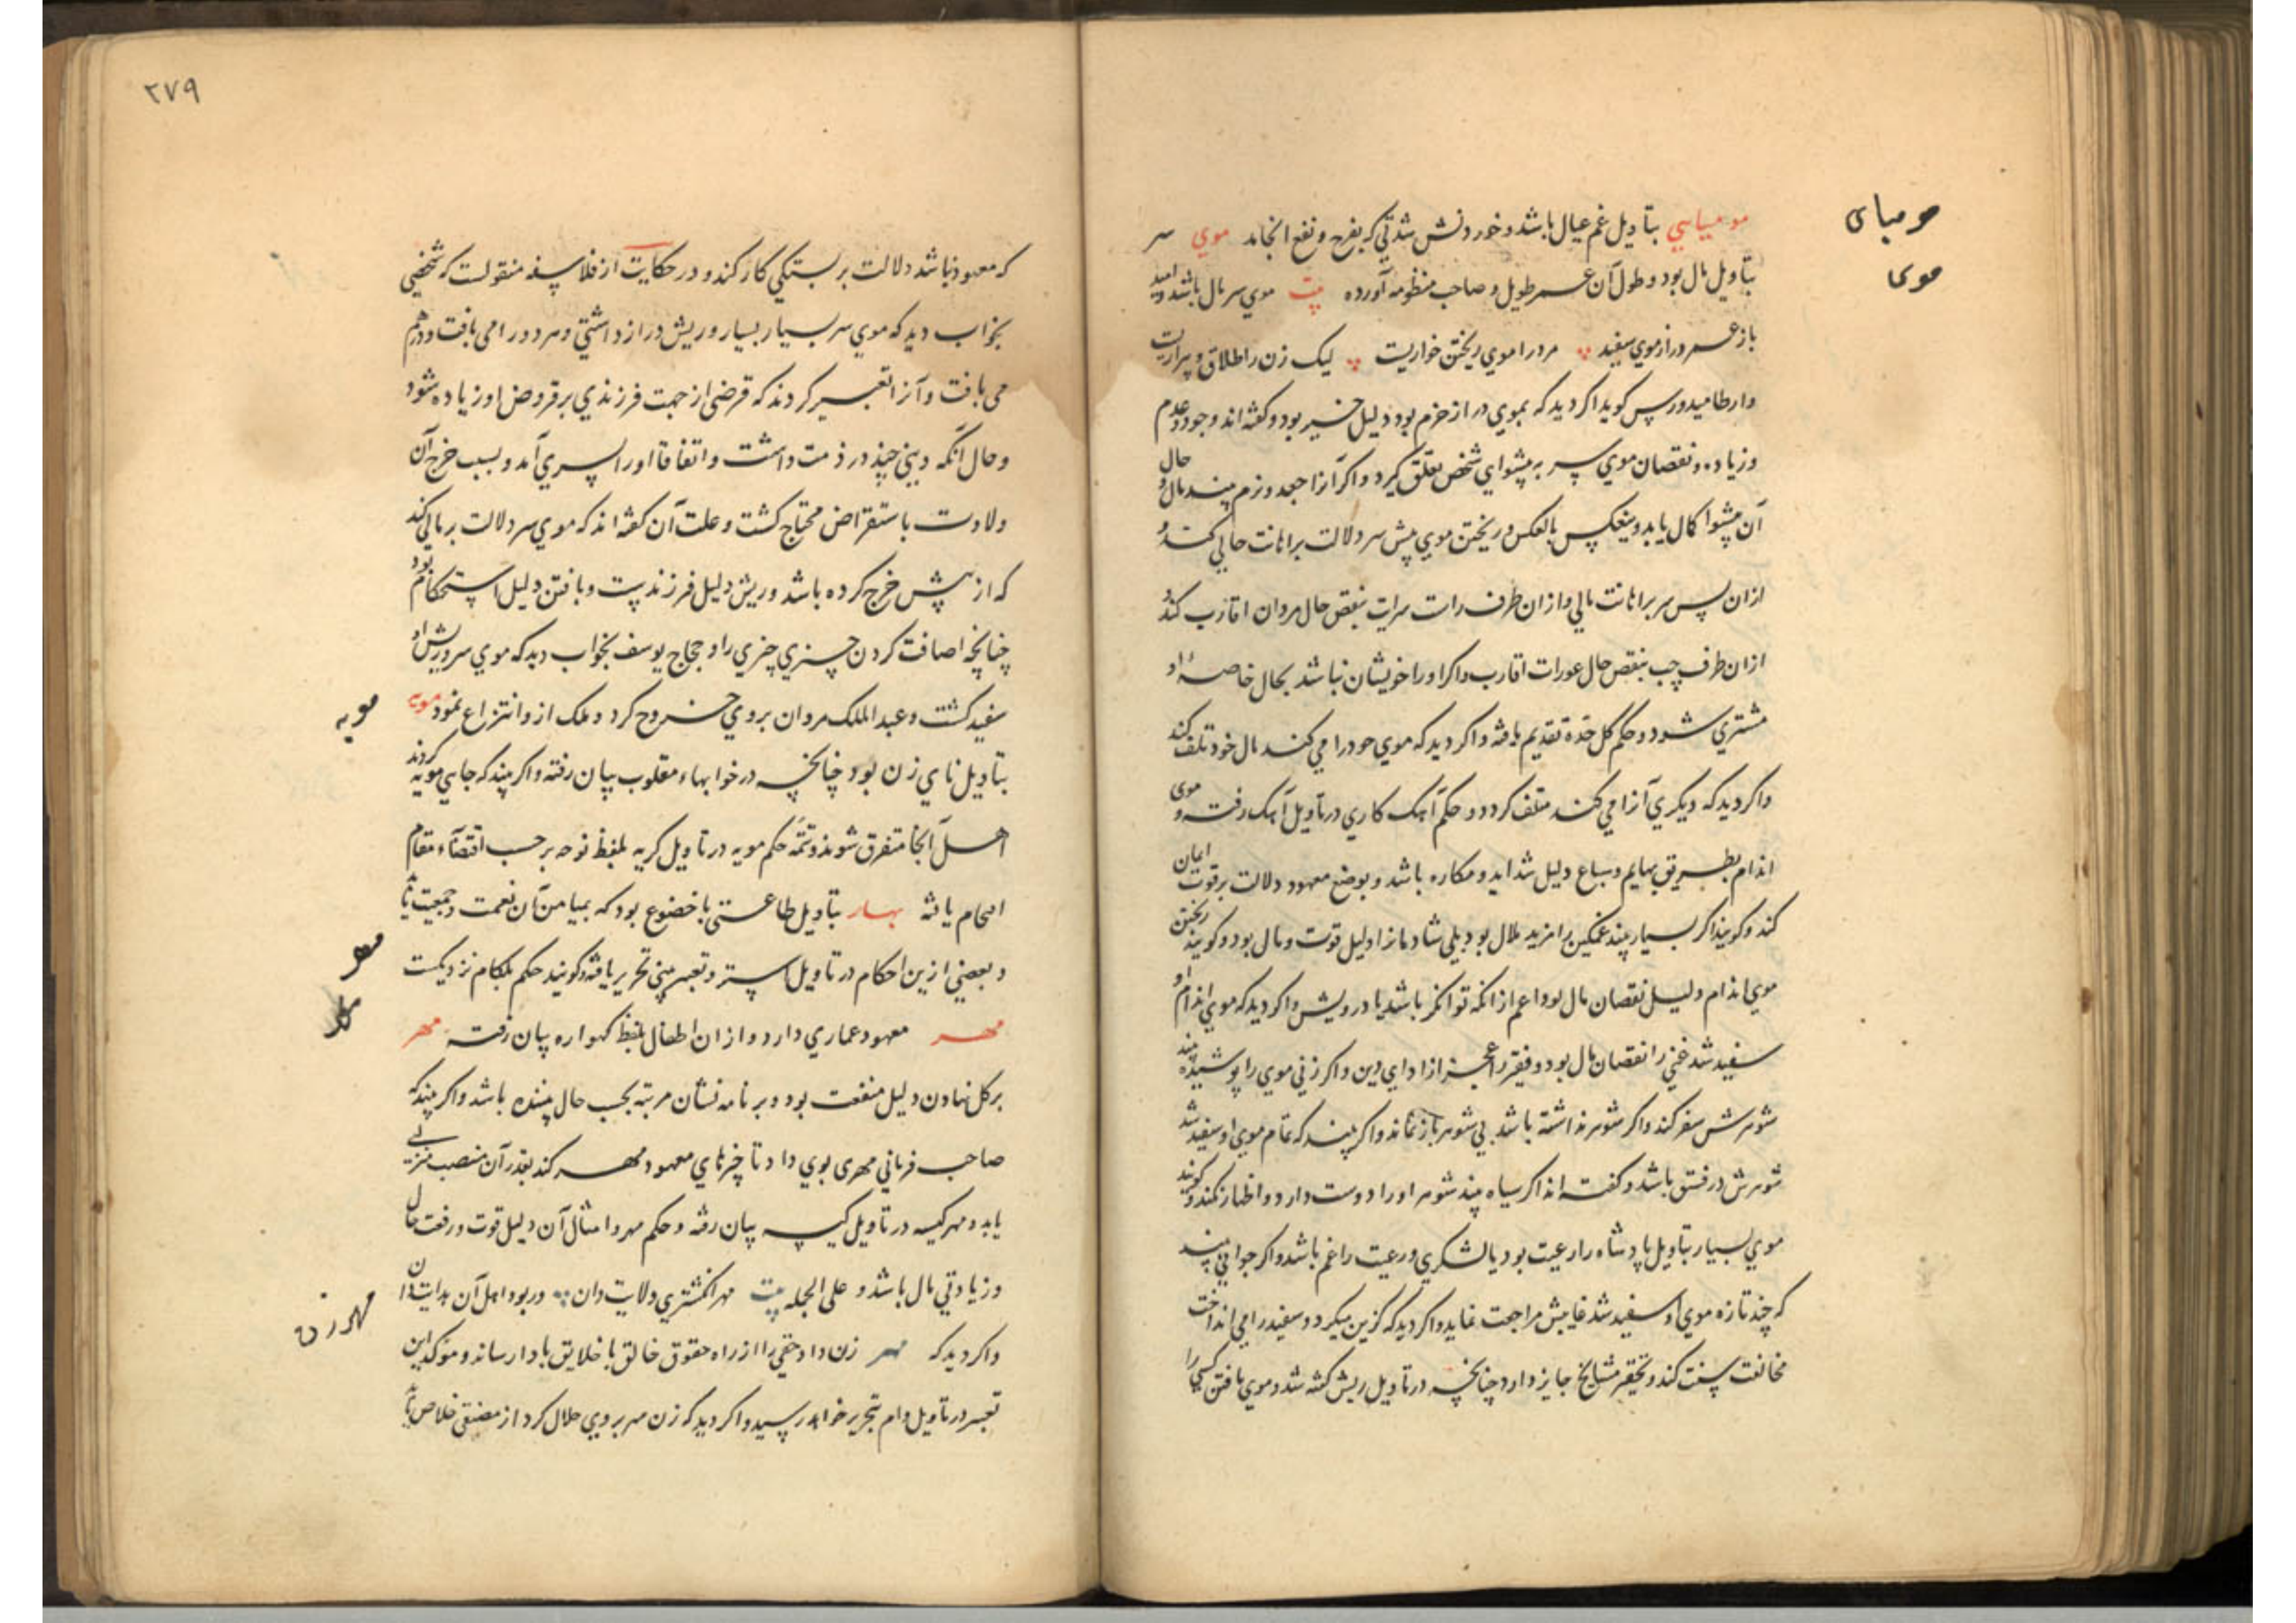 مومیای
مومیایي بتأویل غم عیال باشد و خوردنش شدتي که بفرح و نفع انجامد موي سر
موی
بتأویل مال بود و طول آن عمر طویل و صاحب منظومه آورده بیت موي سر مال باشد و امید
باز عمر دراز موي سفید مرد را موي ریختن خواریست لیک زن را طلاق و بیزاریست
وارطامیدورس کوید اگر دید که بموي دراز خرم بود دلیل خیر بود و کفته اند وجود و عدم
و زیاده و نقصان موي سر به پیشواي شخص تعلق کیرد و اکر آنرا جعد و نرم بیند مال و حال
آن پیشوا کمال یابد و ینعکس بالعکس و ریختن موي پیش سر دلالت بر اهانت حالي کند و
ازان پس سر بر اهانت مالي و ازان طرف راست سرایت بنقص حال مردان اقارب کند و
ازان طرف چپ بنقص حال عورات اقارب و اکر او را خویشان نباشد بحال خاصهٔ او
مشتري شود و حکم کل خده تقدیم یافته و اکر دید که موي خود را مي کند مال خود تلف کند
و اکر دید که دیکري آنرا مي کند متلف کردد و حکم آهک کاري در تأویل آهک رفت و موی
اندام بطریق بهایم و سباع دلیل شداید و مکاره باشد و بوضع معهود دلالت بر قوت ایمان
کند و کویند اکر بسیار بیند غمکین را مزید ملال بود بلي شادمانرا دلیل قوت و مال بود و کویند ریختن
موي اندام دلیل نقصان مال بود اعم ازانکه توانکر باشد یا درویش و اکر دید که موي اندام او
سفید شد غني را نقصان مال بود و فقیر را عجز از اداي دین و اکر زني موي را پوشیده بیند
شوهرش سفر کند و اکر شوهر نداشته باشد بي شوهر باز نماند و اکر بیند که تمام موي او سفید شد
شوهرش در فسق باشد و کفته اند اکر سیاه بیند شوهر او را دوست دارد و اظهار نکند و کویند
موي بسیار بتأویل پادشاه را رعیت بود یا لشکري و رعیت را غم باشد و اکر جواني بیند
که چند تازه موي او سفید شد غایبش مراجعت نماید و اکر دید که کزین میکرد و سفید را مي انداخت
مخالفت سنت کند و تحقیر مشایخ جایز دارد چنانچه در تأویل ریش کفته شد و موي بافتن کسي را
۲۷۹
که معهود نباشد دلالت بر بستکي کار کند و در حکایت از فلاسفه منقولست که شخصي
بخواب دید که موي سر بسیار بسیار و ریش دراز داشتي و هر دو را مي بافت و در هم
مي بافت و آنرا تعبیر کردند که قرضي از جهت فرزندي بر قروض او زیاده شود
و حال آنکه دیني چند در ذمت داشت و اتفاقا او را پسري آمد و بسبب خرج آن
ولادت باستقراض محتاج کشت و علت آن کفته اند که موي سر دلالت بر مالي کند
که از پیش خرج کرده باشد و ریش دلیل فرزندیست و بافتن دلیل استحکام بود
چنانچه اضافت کردن چیزي چیزي را و حجاج یوسف بخواب دید که موي سر و ریش او
سفید کشت و عبد الملک مروان بروي خروج کرد و ملک ازو انتزاع نمود مویه
مویه
بتأویل نای زن بود چنانچه در خوابهاء مقلوب بیان رفته و اکر بیند که جایي مویه کردند
اهل آنجا متفرق شوند و تتمه حکم مویه در تأویل کریه بلفظ نوحه بر حسب اقتضاء مقام
اقحام یافته مهار بتأویل طاعتي با خضوع بود که بمیامن آن نعمت و جمعیت یابد
و بعضي ازین احکام در تأویل استر و تعبیر بیني تحریر یافته و کویند حکم بلکام نزدیکست
مهد
مهد معهود عماري دارد و ازان اطفال بلفظ کهواره بیان رفت مهر
بر کل نهادن دلیل منفعت بود و بر نامه نشان مرتبه بحسب حال بیننده باشد و اکر بیند که
صاحب فرماني مهري بوي داد تا چیزهاي معهود مهر کند بقدر آن منصب
یابد و مهر کیسه در تأویل کیسه بیان رفته و حکم مهر و امثال آن دلیل قوت و رفعت حال
و زیادتي مال باشد و علي الجمله بیت مهر انکشتري ولایت دان ور بود اهل آن هدایت دان
مهر زن
و اکر دید که مهر زن داد حقي را از راه حقوق خالق یا خلایق بادا رساند و موکد این
تعبیر در تأویل وام بتحریر خواهد رسید و اکر دید که زن مهر بروي حلال کرد از مضیقي خلاص یابد